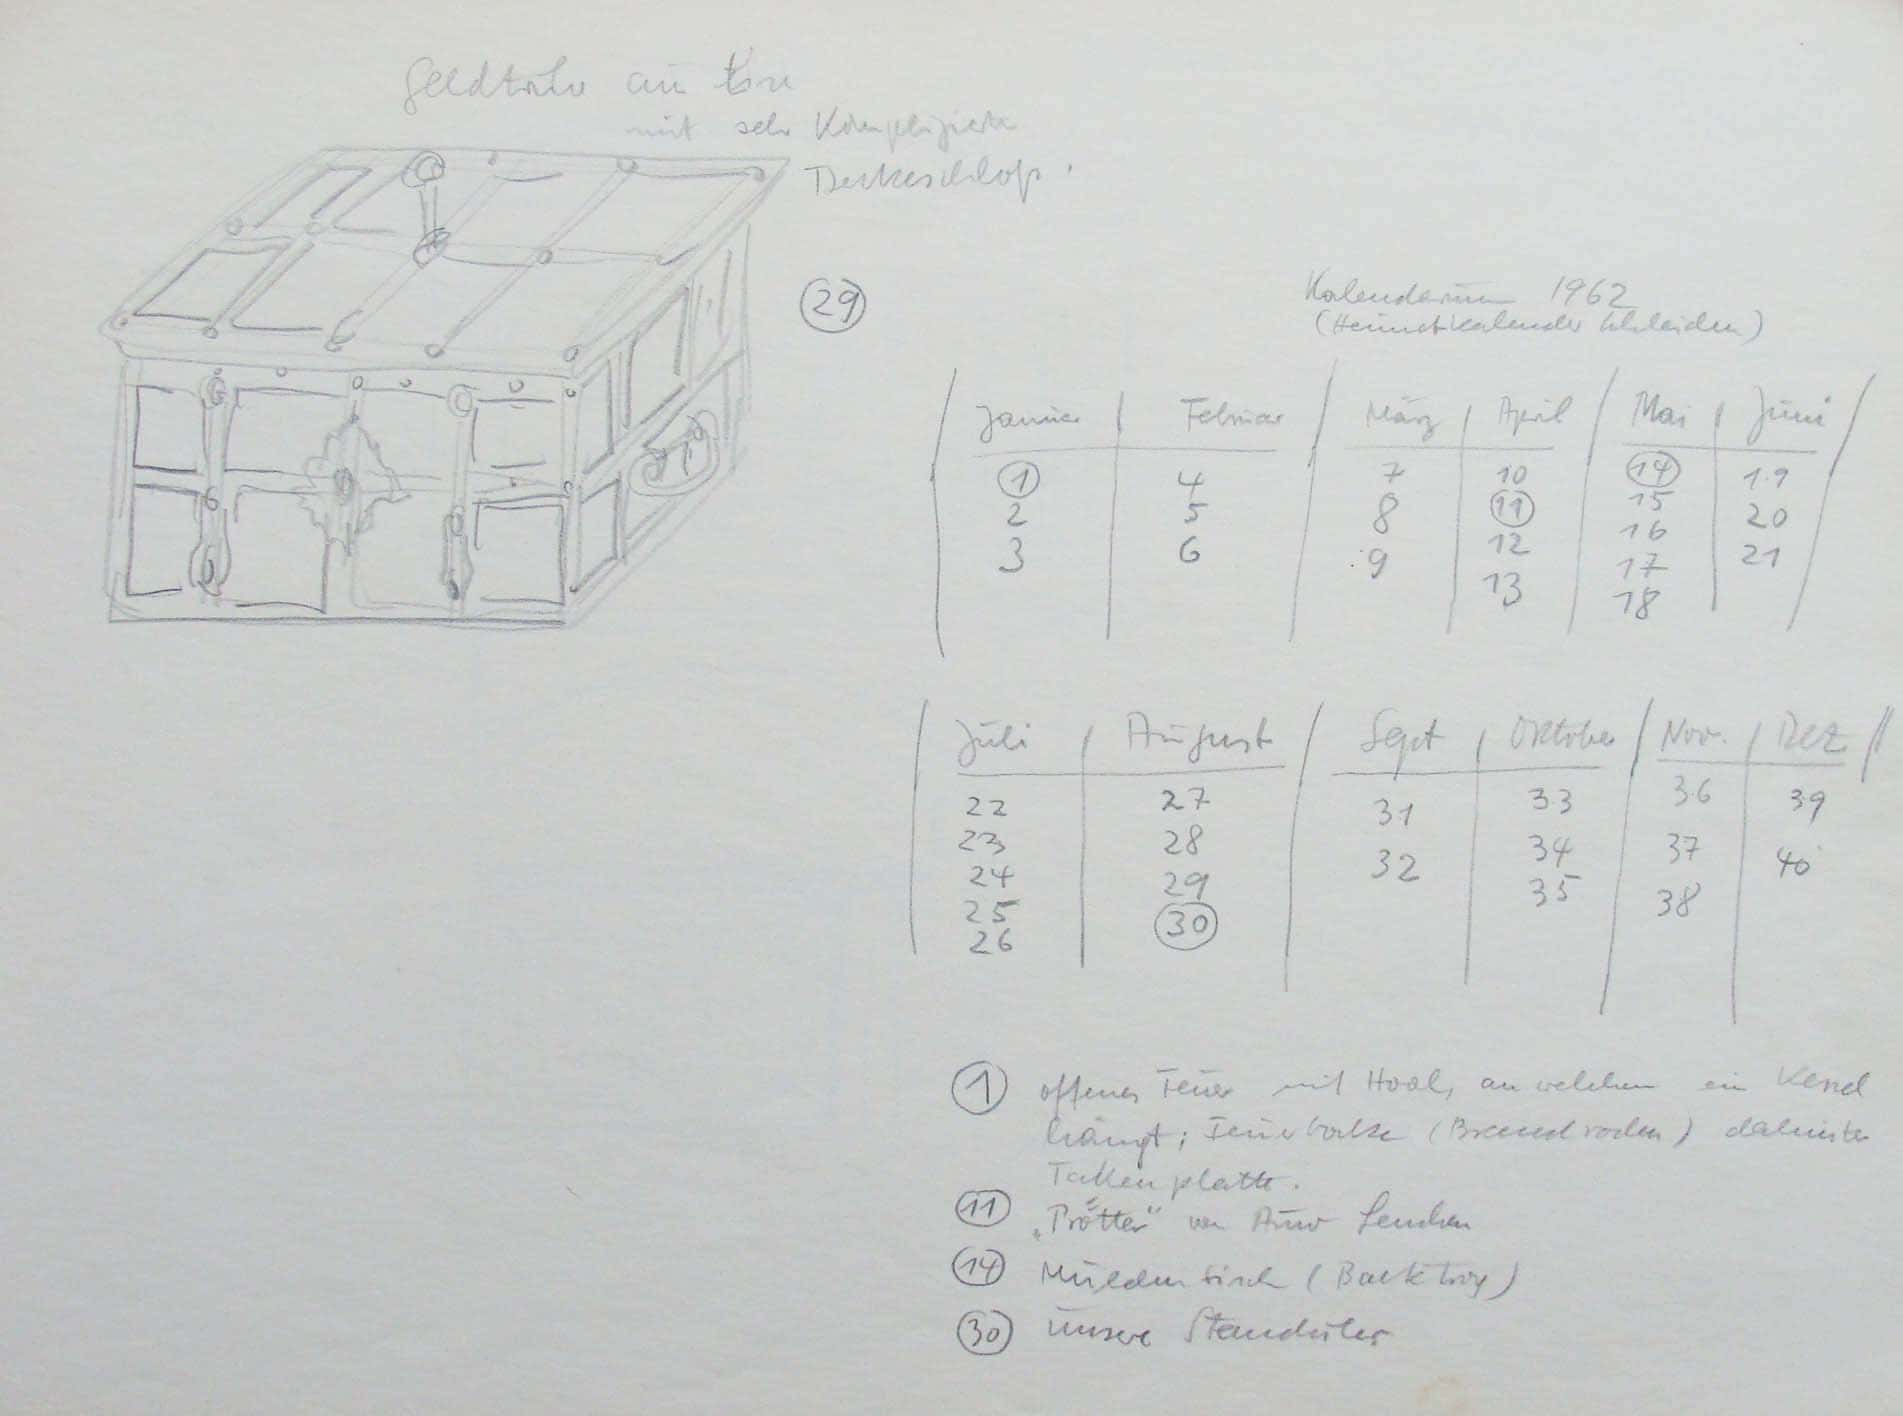 Geldtruhe
mit sehr komplizierte
Deckelschloß.
29
Kalendarium 1962
(Heimatkalender Schleiden)
Januar Februar März April Mai Juni
1 4 7 10 14 19
2 5 8 11 15 20
3 6 9 12 16 21
13 17
18
Juli August Sept Oktober Nov. Dez
22 27 31 33 36 39
23 28 32 34 37 40
24 29 35 38
25 30
26
1 offenes Feuer mit Hool, an welchem ein Kessel
hängt; Feuerböcke (Brandroden) dahinter
Takenplatte.
11 von
14 Muldentisch (Backtrog)
30 unsere Standuhr